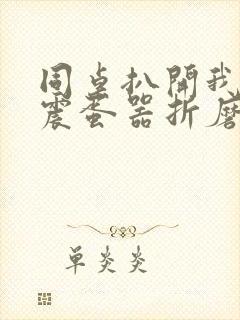 同桌扒開我
震蛋器折磨
單炎炎